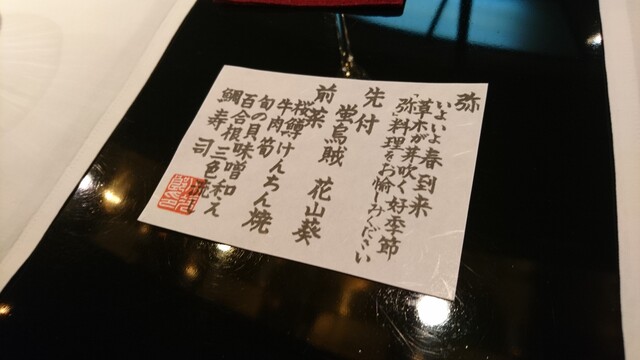 弥
いよいよ春到来
草木が芽吹く好季節
「弥」料理をお愉しみください
先付
蛍烏賊 花山葵
前菜
桜鱒けんちん焼
牛肉筍
旬の貝味噌和え
百合根三色流し
鯛寿司